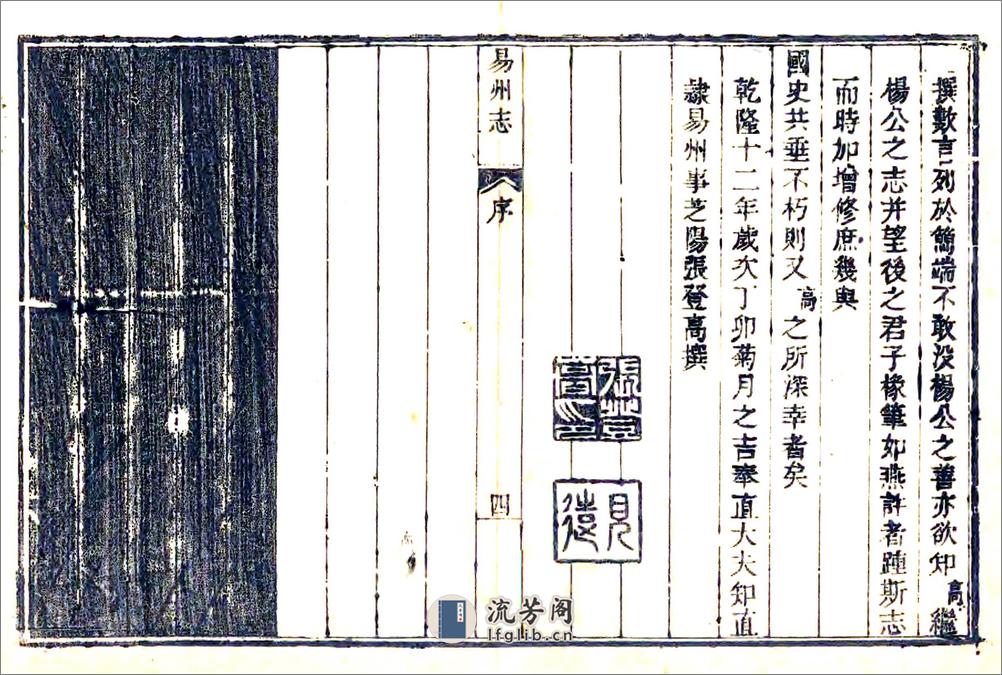 撰數言列於簡端不敢沒楊公之善亦欲知高繼
楊公之志并望後之君子椽筆如燕許者踵斯志
而時加增修庶幾與
國史共垂不朽則又高之所深幸者矣
乾隆十二年歲次丁卯菊月之吉奉直大夫知直
隸易州事芝陽張登高撰
張登高印
見遠
易州志
序
四
流芳阁
lfglib.cn